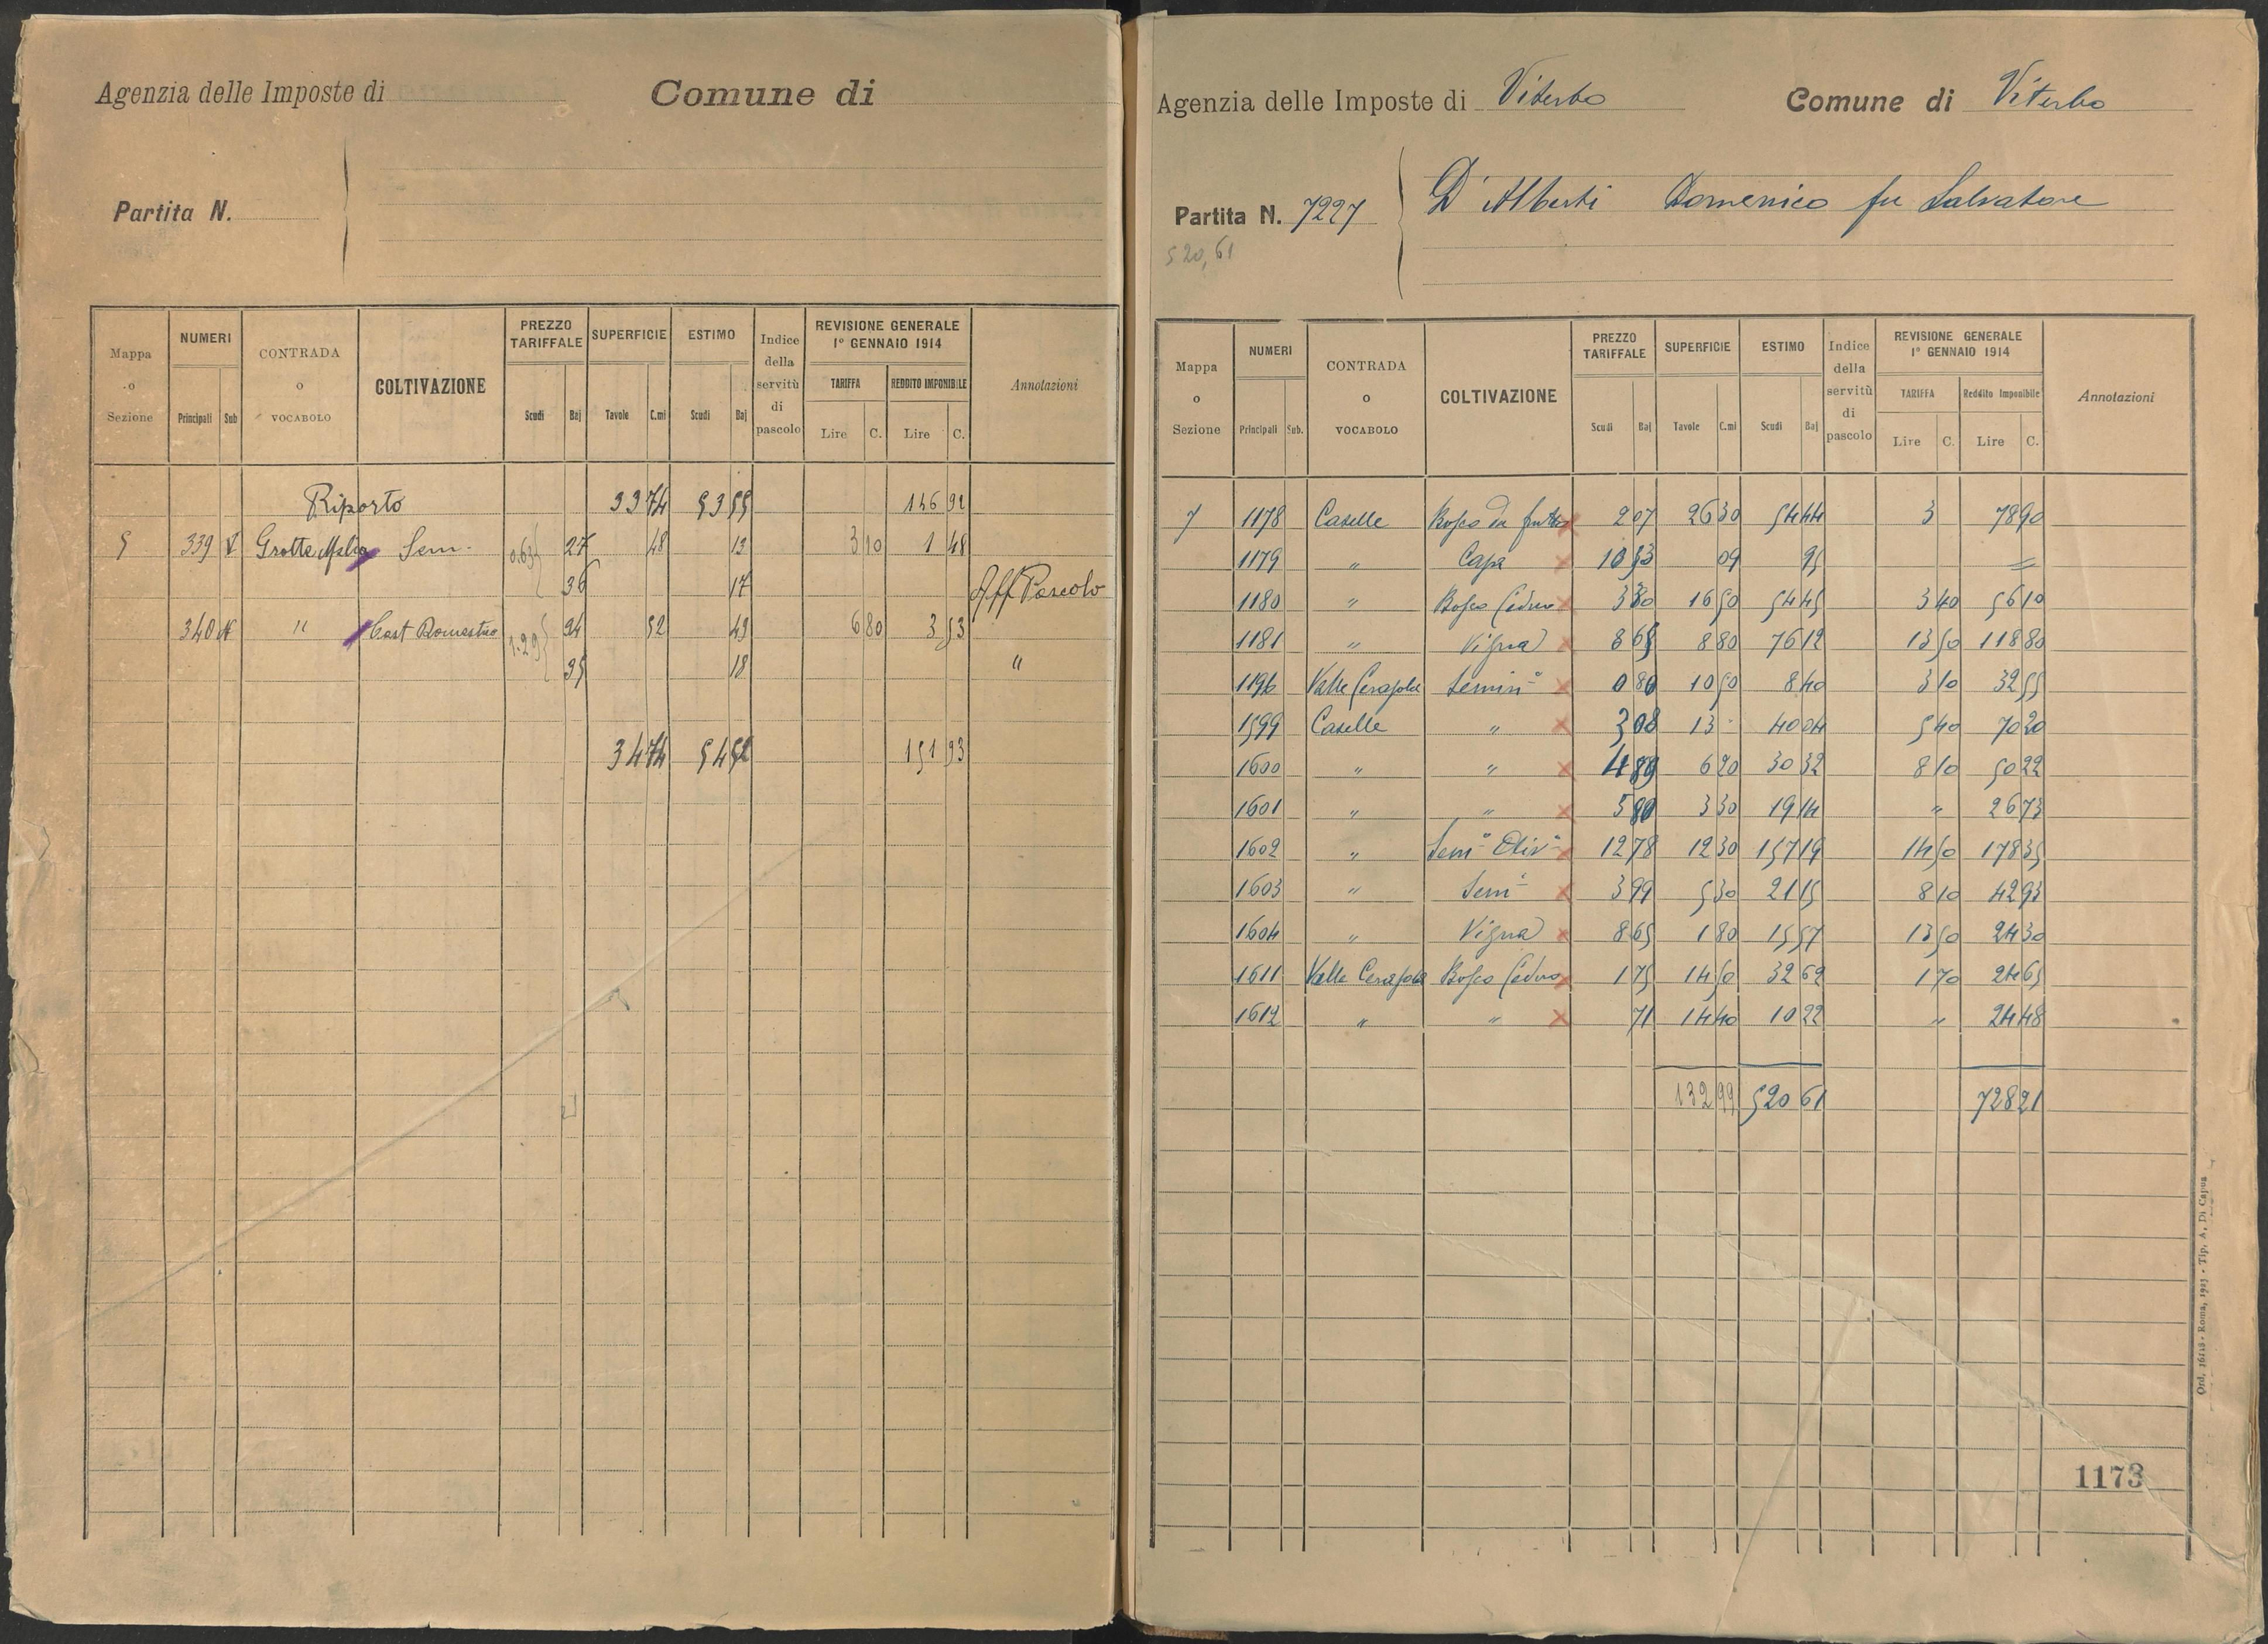 Agenzia delle Imposte di
Comune di
Partita N.
Mappa o Sezione | NUMERI Principali Sub | CONTRADA o VOCABOLO | COLTIVAZIONE | PREZZO TARIFFALE Scudi Baj | SUPERFICIE Tavole C.mi | ESTIMO Scudi Baj | Indice della servitù di pascolo | REVISIONE GENERALE 1° GENNAIO 1914 TARIFFA Lire C. REDDITO IMPONIBILE Lire C. | Annotazioni
Riporto 33 74 53 55 146 92
5 339 Grotte Sem. 0.63 27 48 13 3 10 1 48
36 17 Aff Pascolo
340 " Cast Domestico 1.29 94 52 49 6 80 3 53
35 18 "
34 74 54 52 151 93
Agenzia delle Imposte di Viterbo Comune di Viterbo
Partita N. 7227 D'Alberti Domenico fu Salvatore
520,61
Mappa o Sezione | NUMERI Principali Sub. | CONTRADA o VOCABOLO | COLTIVAZIONE | PREZZO TARIFFALE Scudi Baj | SUPERFICIE Tavole C.mi | ESTIMO Scudi Baj | Indice della servitù di pascolo | REVISIONE GENERALE 1° GENNAIO 1914 TARIFFA Lire C. Reddito Imponibile Lire C. | Annotazioni
7 1178 Caselle Bosco da frutto x 2 07 26 30 54 44 3 78 90
1179 " Casa x 10 53 09 95 =
1180 " Bosco Ceduo x 3 30 16 50 54 45 3 40 56 10
1181 " Vigna x 8 65 8 80 76 12 13 50 118 80
1196 Valle Cerasola Semin° x 0 80 10 50 8 40 3 10 32 55
1599 Caselle " x 3 08 13 - 40 04 5 40 70 20
1600 " " x 4 89 6 20 30 32 8 10 50 22
1601 " " x 5 80 3 30 19 14 " 26 73
1602 " Sem° Oliv° x 12 78 12 30 157 19 14 50 178 35
1603 " Sem° x 3 99 5 30 21 15 8 10 42 93
1604 " Vigna x 8 65 1 80 15 57 13 50 24 30
1611 Valle Cerasola Bosco Ceduo x 1 75 14 50 32 62 1 70 24 65
1612 " " x 71 14 40 10 22 " 24 48
132 99 520 61 728 21
1173
Ord. 16118 - Roma, 1923 - Tip. A. Di Capua